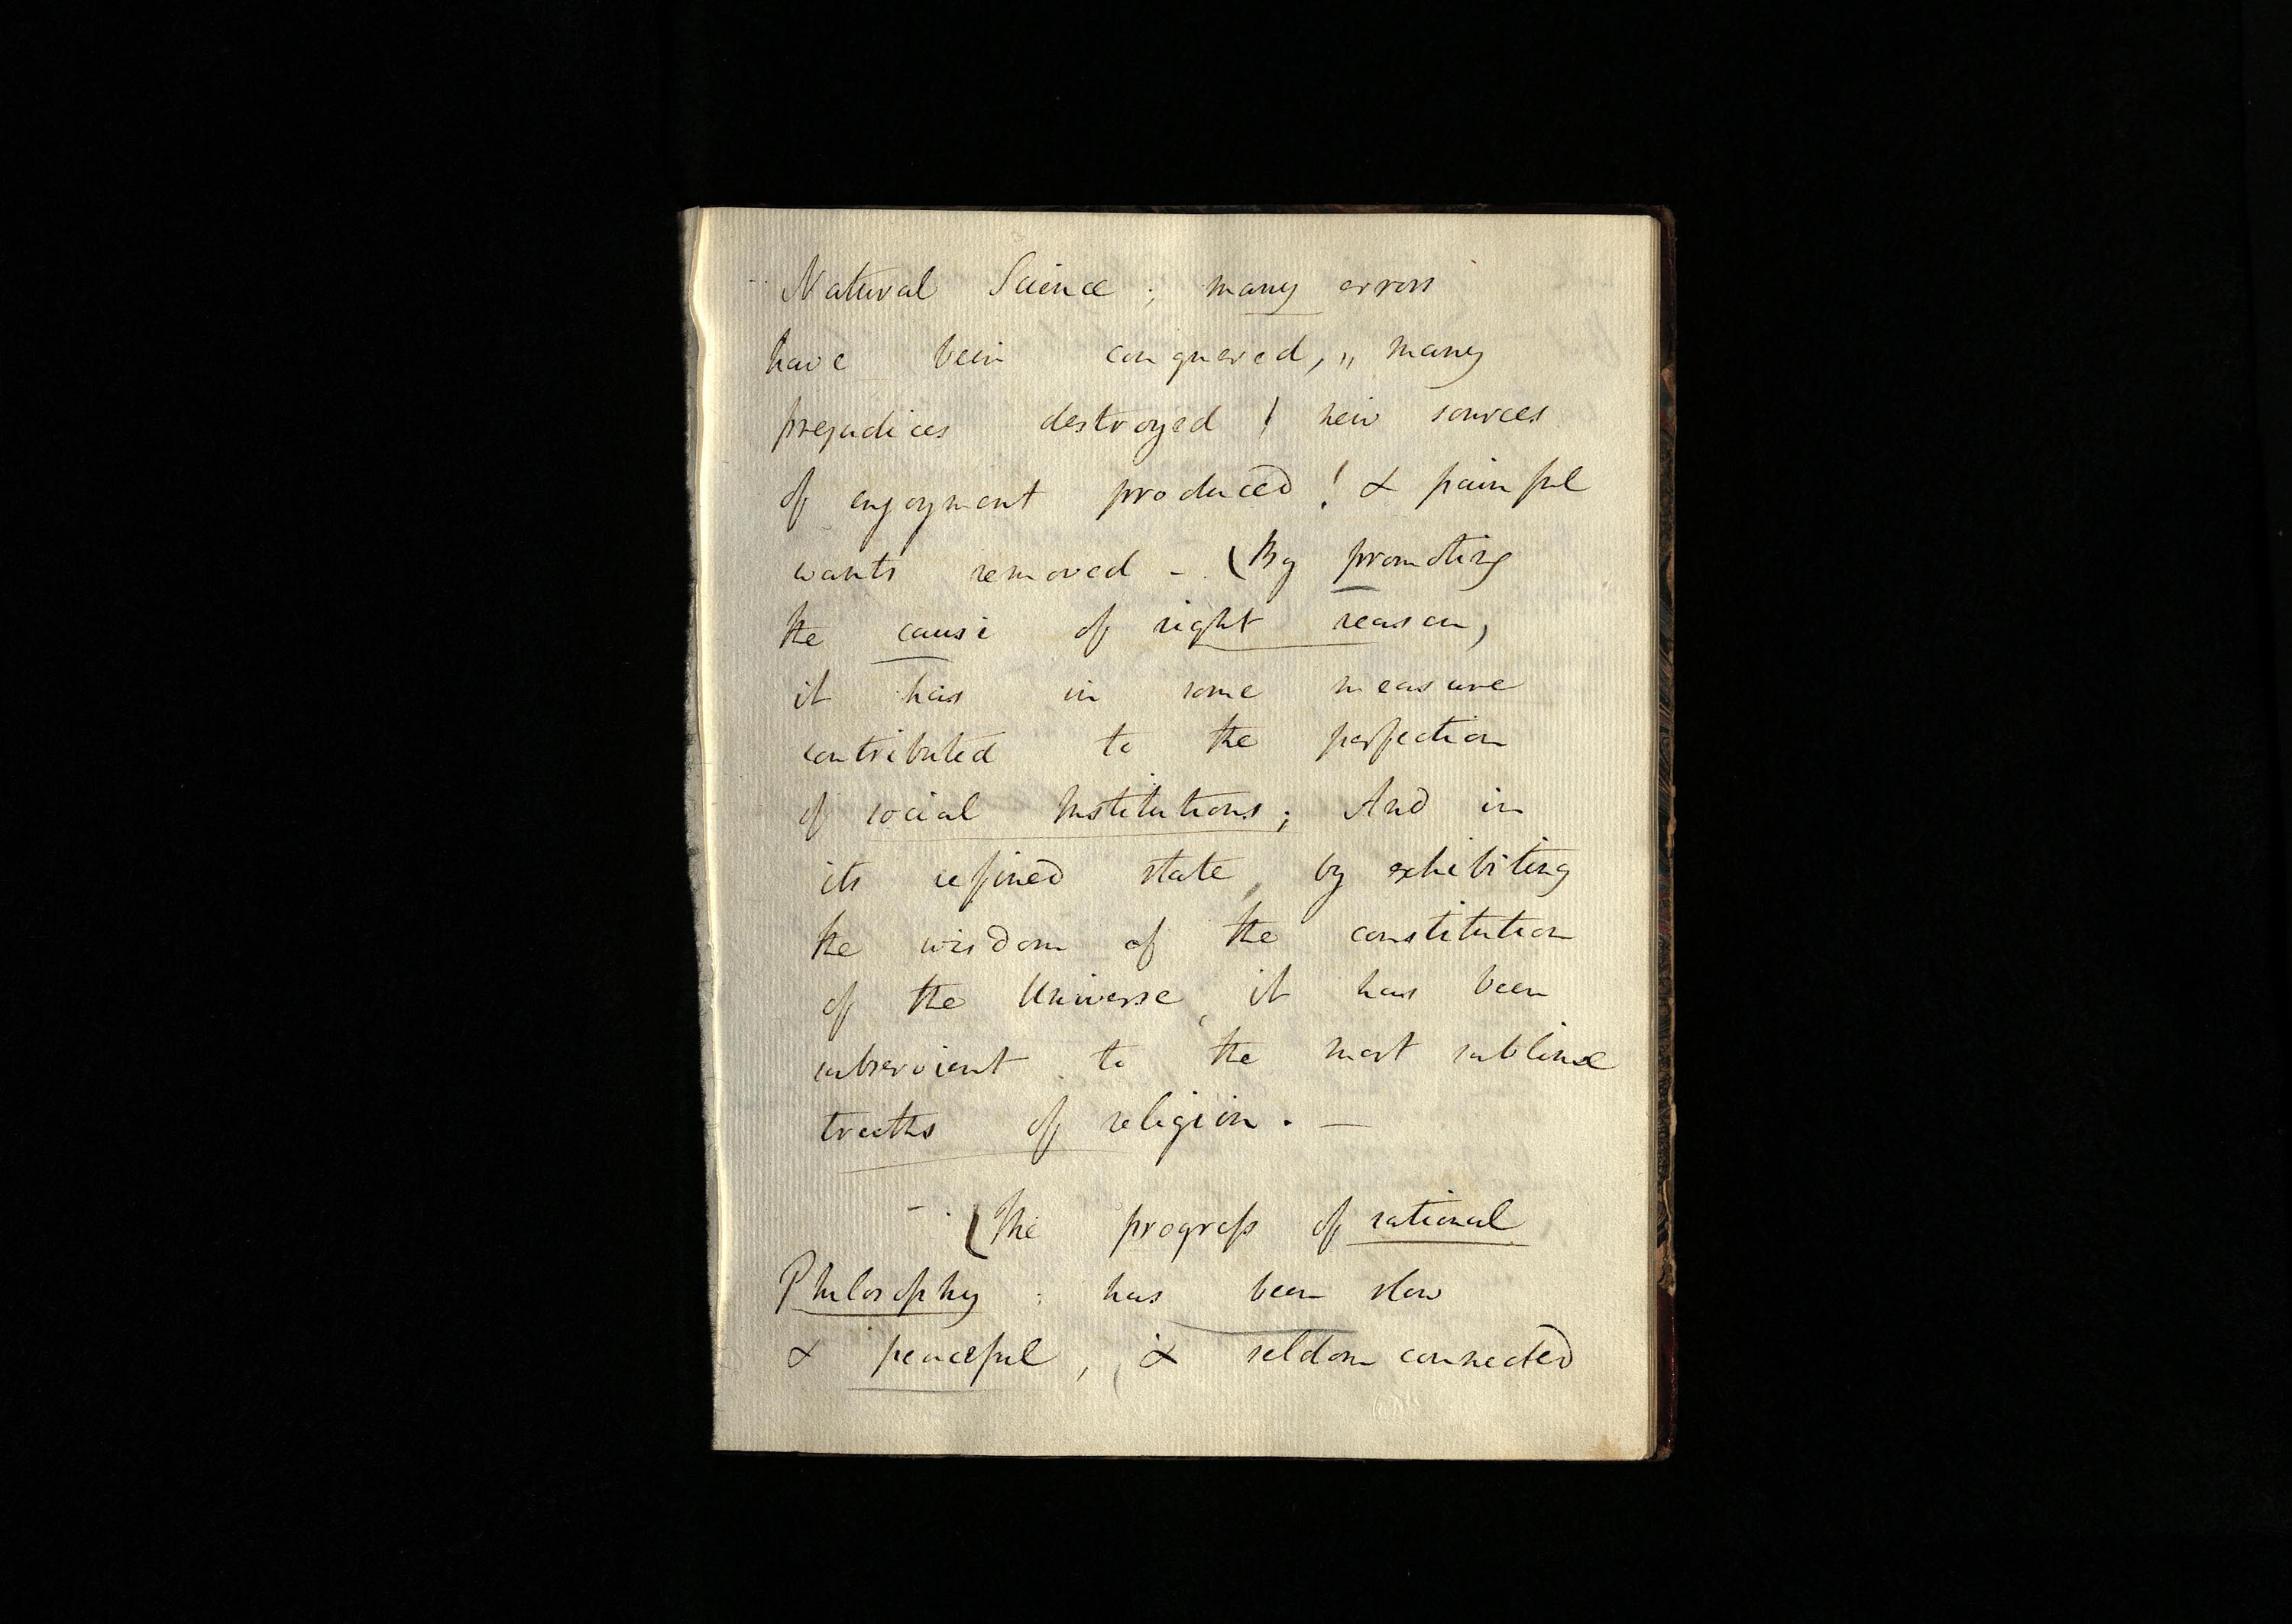 Natural Science; many errors
have been conquered, " many
prejudices destroyed! new sources
of enjoyment produced! & painful
wants removed - (By promoting
the cause of right reason,
it has in some measure
contributed to the perfection
of social Institutions; And in
its refined state, by exhibiting
the wisdom of the constitution
of the Universe, it has been
subservient to the most sublime
truths of religion. —
- (The progress of rational
Philosophy; has been slow
& peaceful, & seldom connected